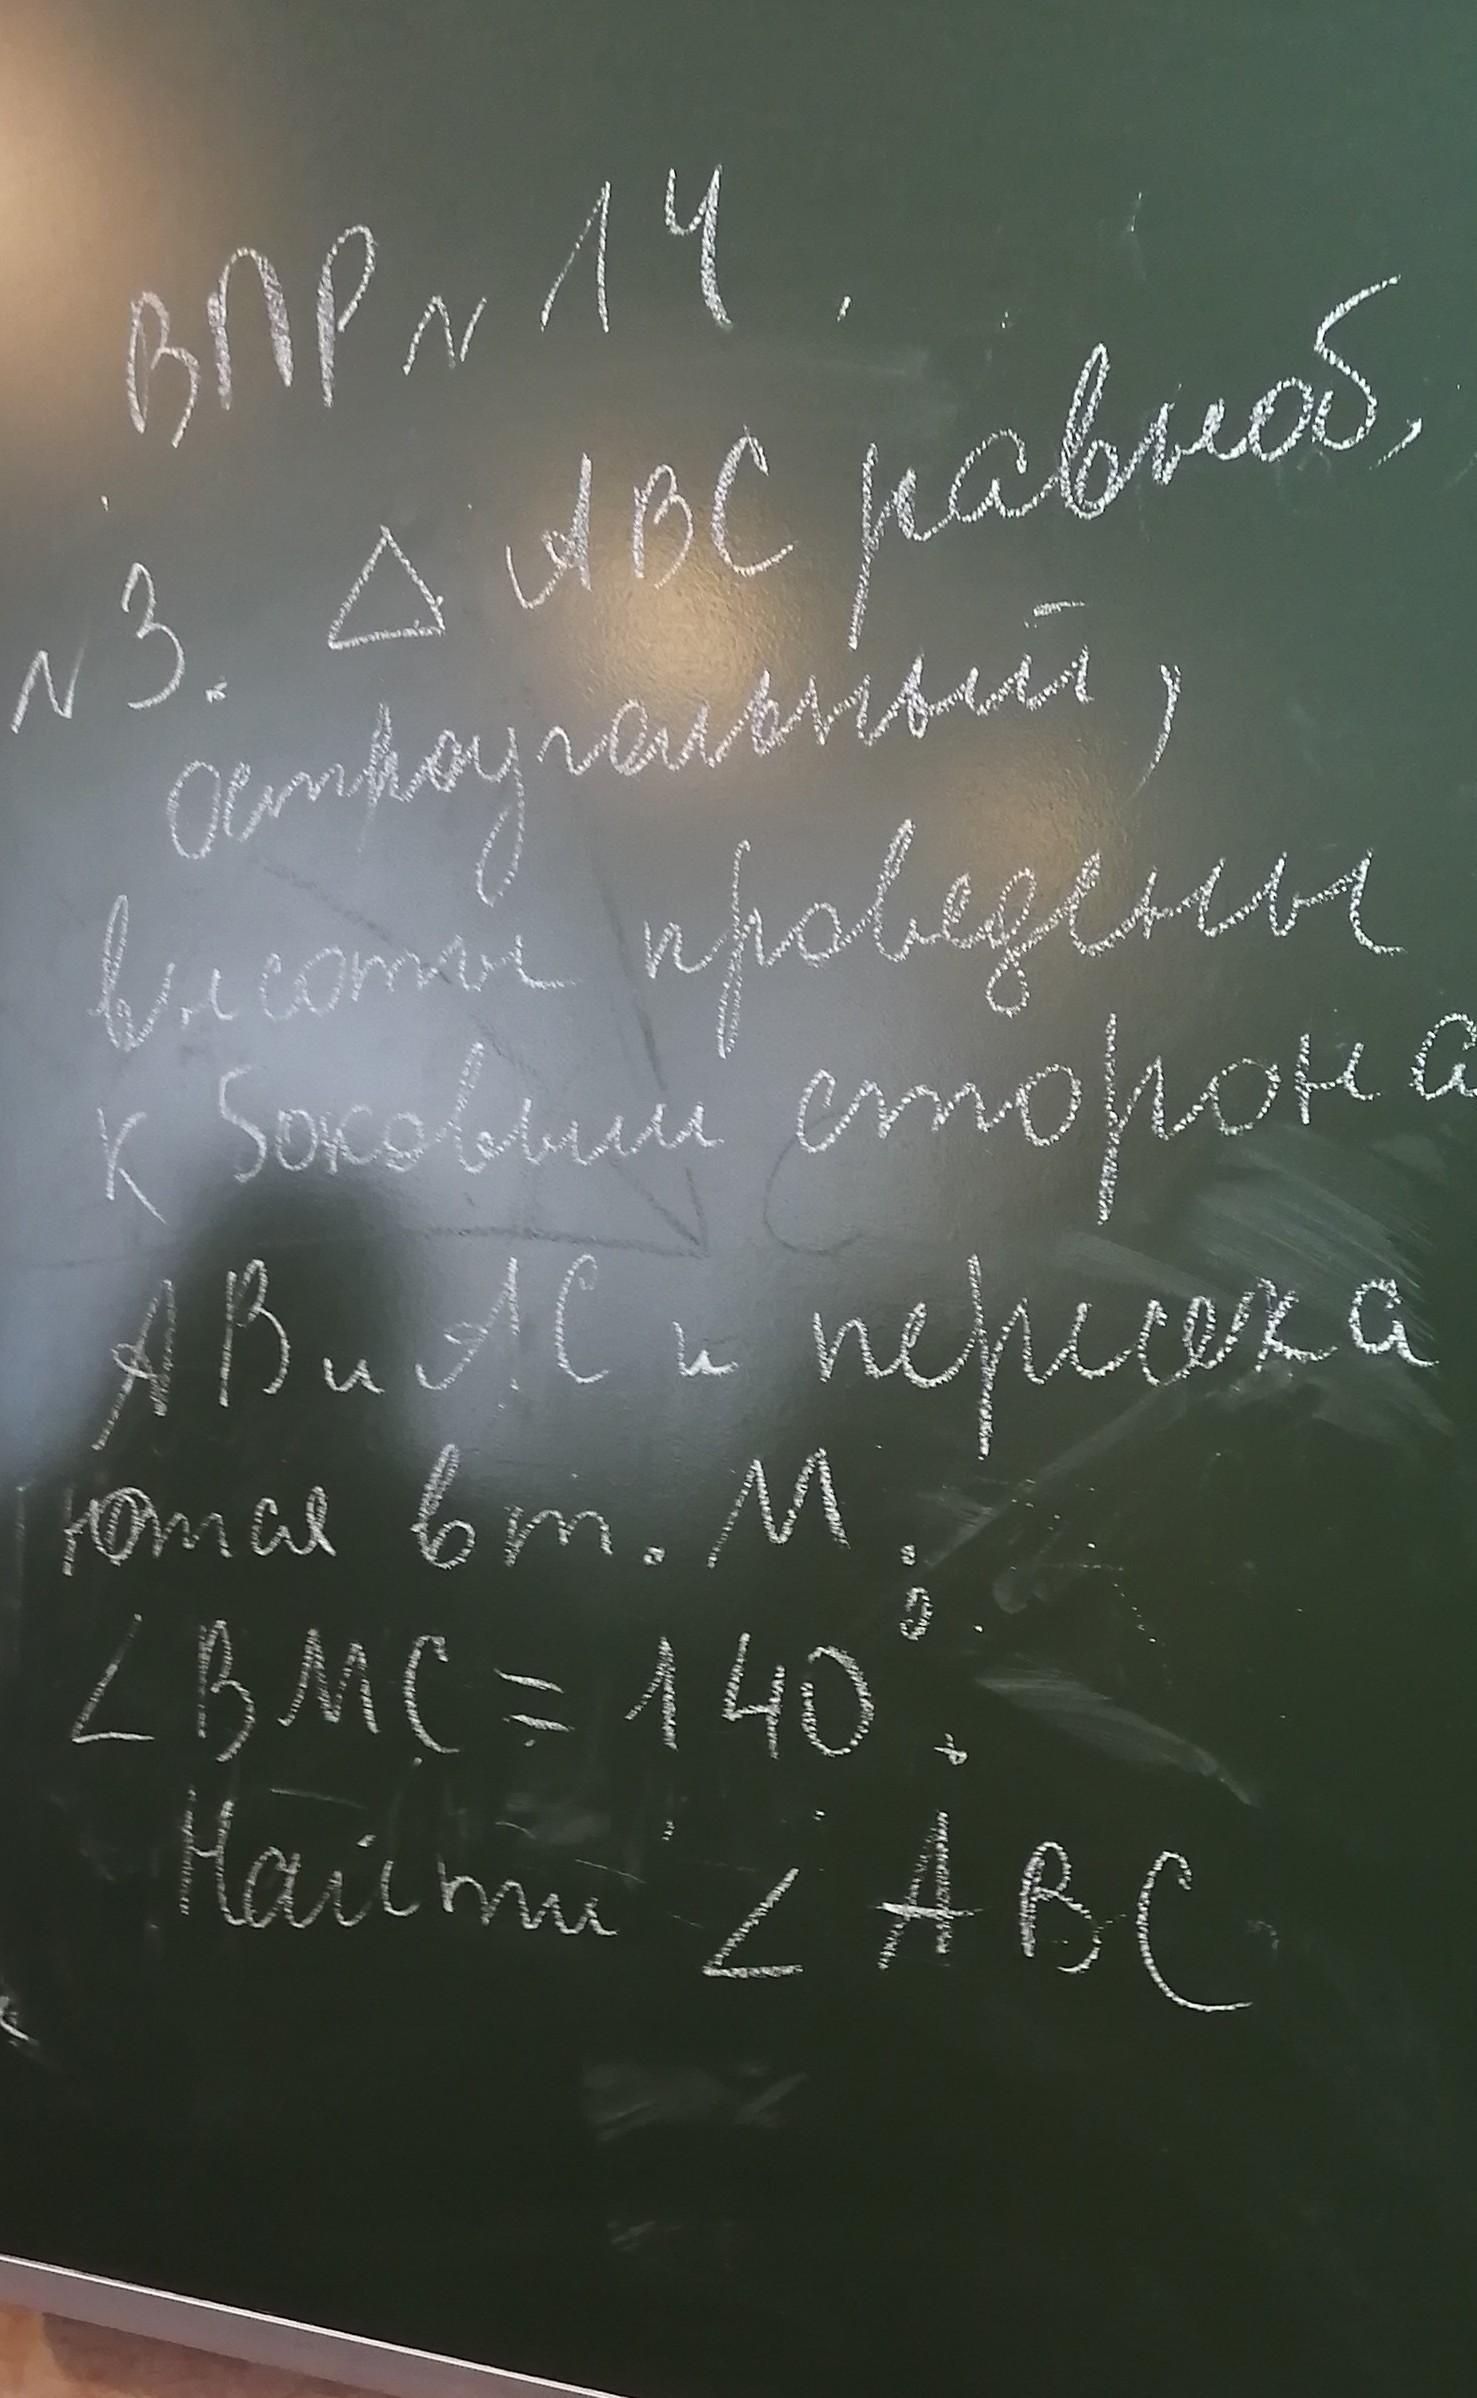 ВПР N 14
N3. △ ABC равноб,
остроугольный,
высоты проведены
к боковым сторона
AB и AC и пересека
ются в т. M.
∠BMC = 140°.
Найти ∠ABC